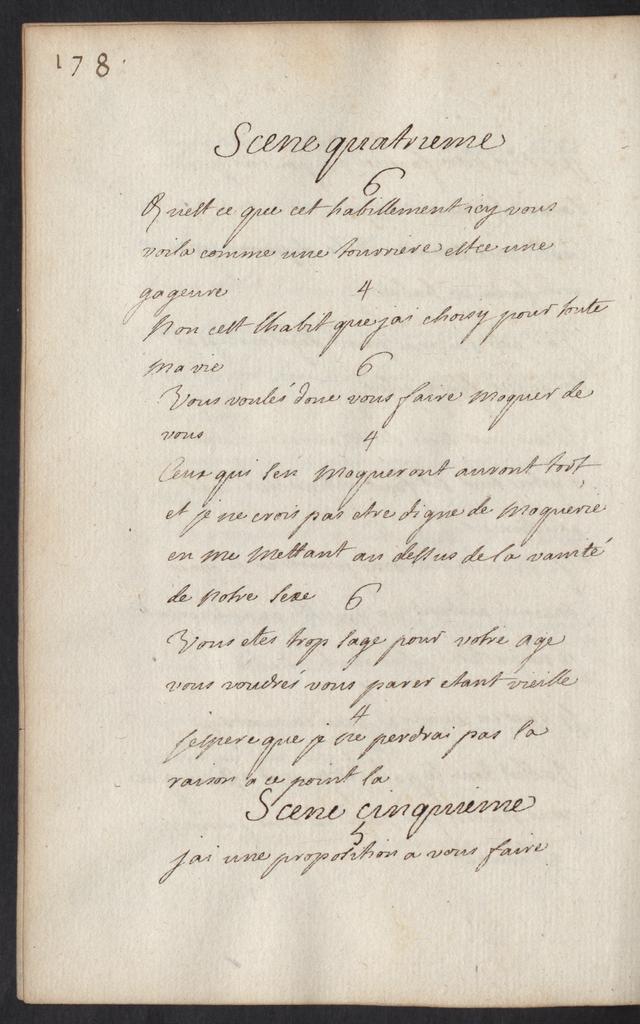 178
Scene quatrieme
6
Quest ce que cet habillement icy vous
voila comme une tourriere est ce une
gageure
4
Non cest lhabit que jai choisy pour toute
ma vie
6
Vous voulés donc vous faire moquer de
vous
4
Ceux qui sen moqueront auront tort
et je ne crois pas etre digne de moquerie
en me mettant au dessus de la vanité
de notre sexe
6
Vous etes trop sage pour votre age
vous voudrés vous parer etant vieille
4
jespere que je ne perdrai pas la
raison a ce point la
Scene cinquieme
5
jai une proposition a vous faire